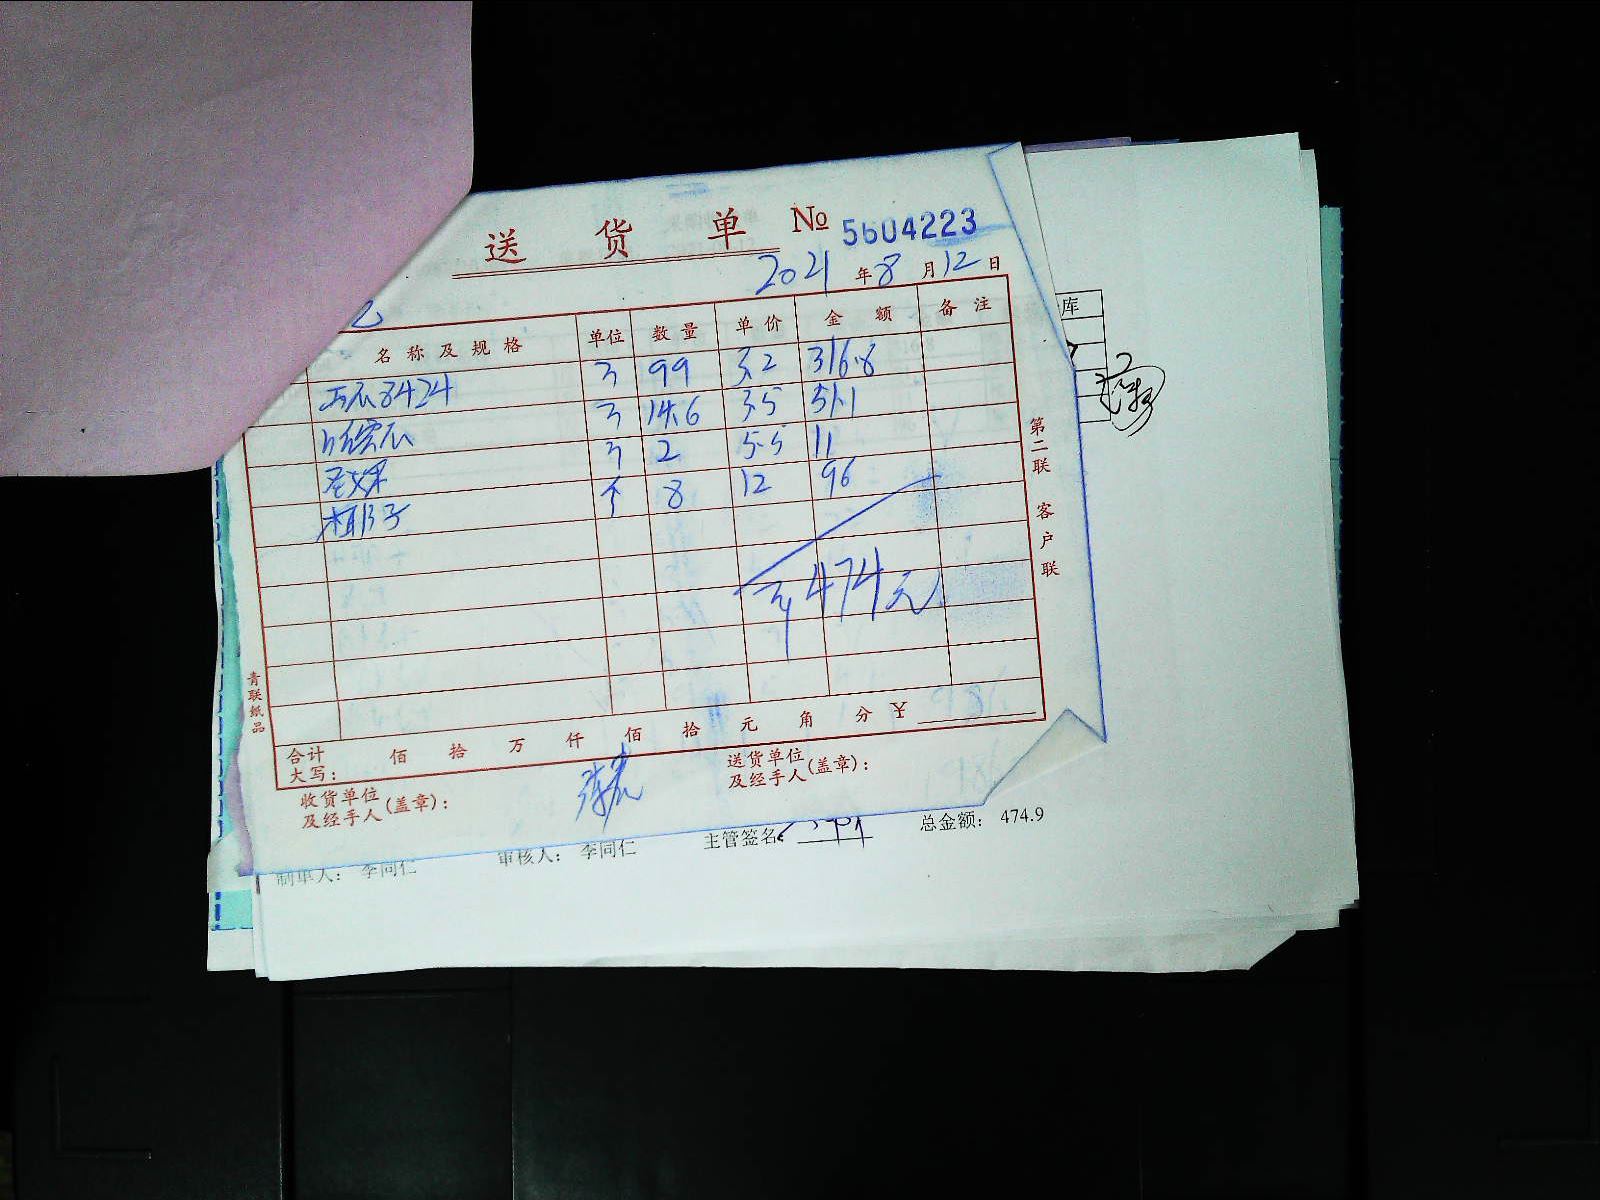 送货单 № 5604223
2021年8月12日
名称及规格 单位 数量 单价 金额 备注
西瓜8424 斤 99 3.2 316.8
哈密瓜 斤 14.6 3.5 51.1
斤 2 5.5 11
椰子 个 8 12 96
474元
合计大写: 佰 拾 万 仟 佰 拾 元 角 分 ¥
收货单位及经手人(盖章):
送货单位及经手人(盖章):
第二联 客户联
青联纸品
库
制单人: 李同仁 审核人: 李同仁 主管签名: 总金额: 474.9